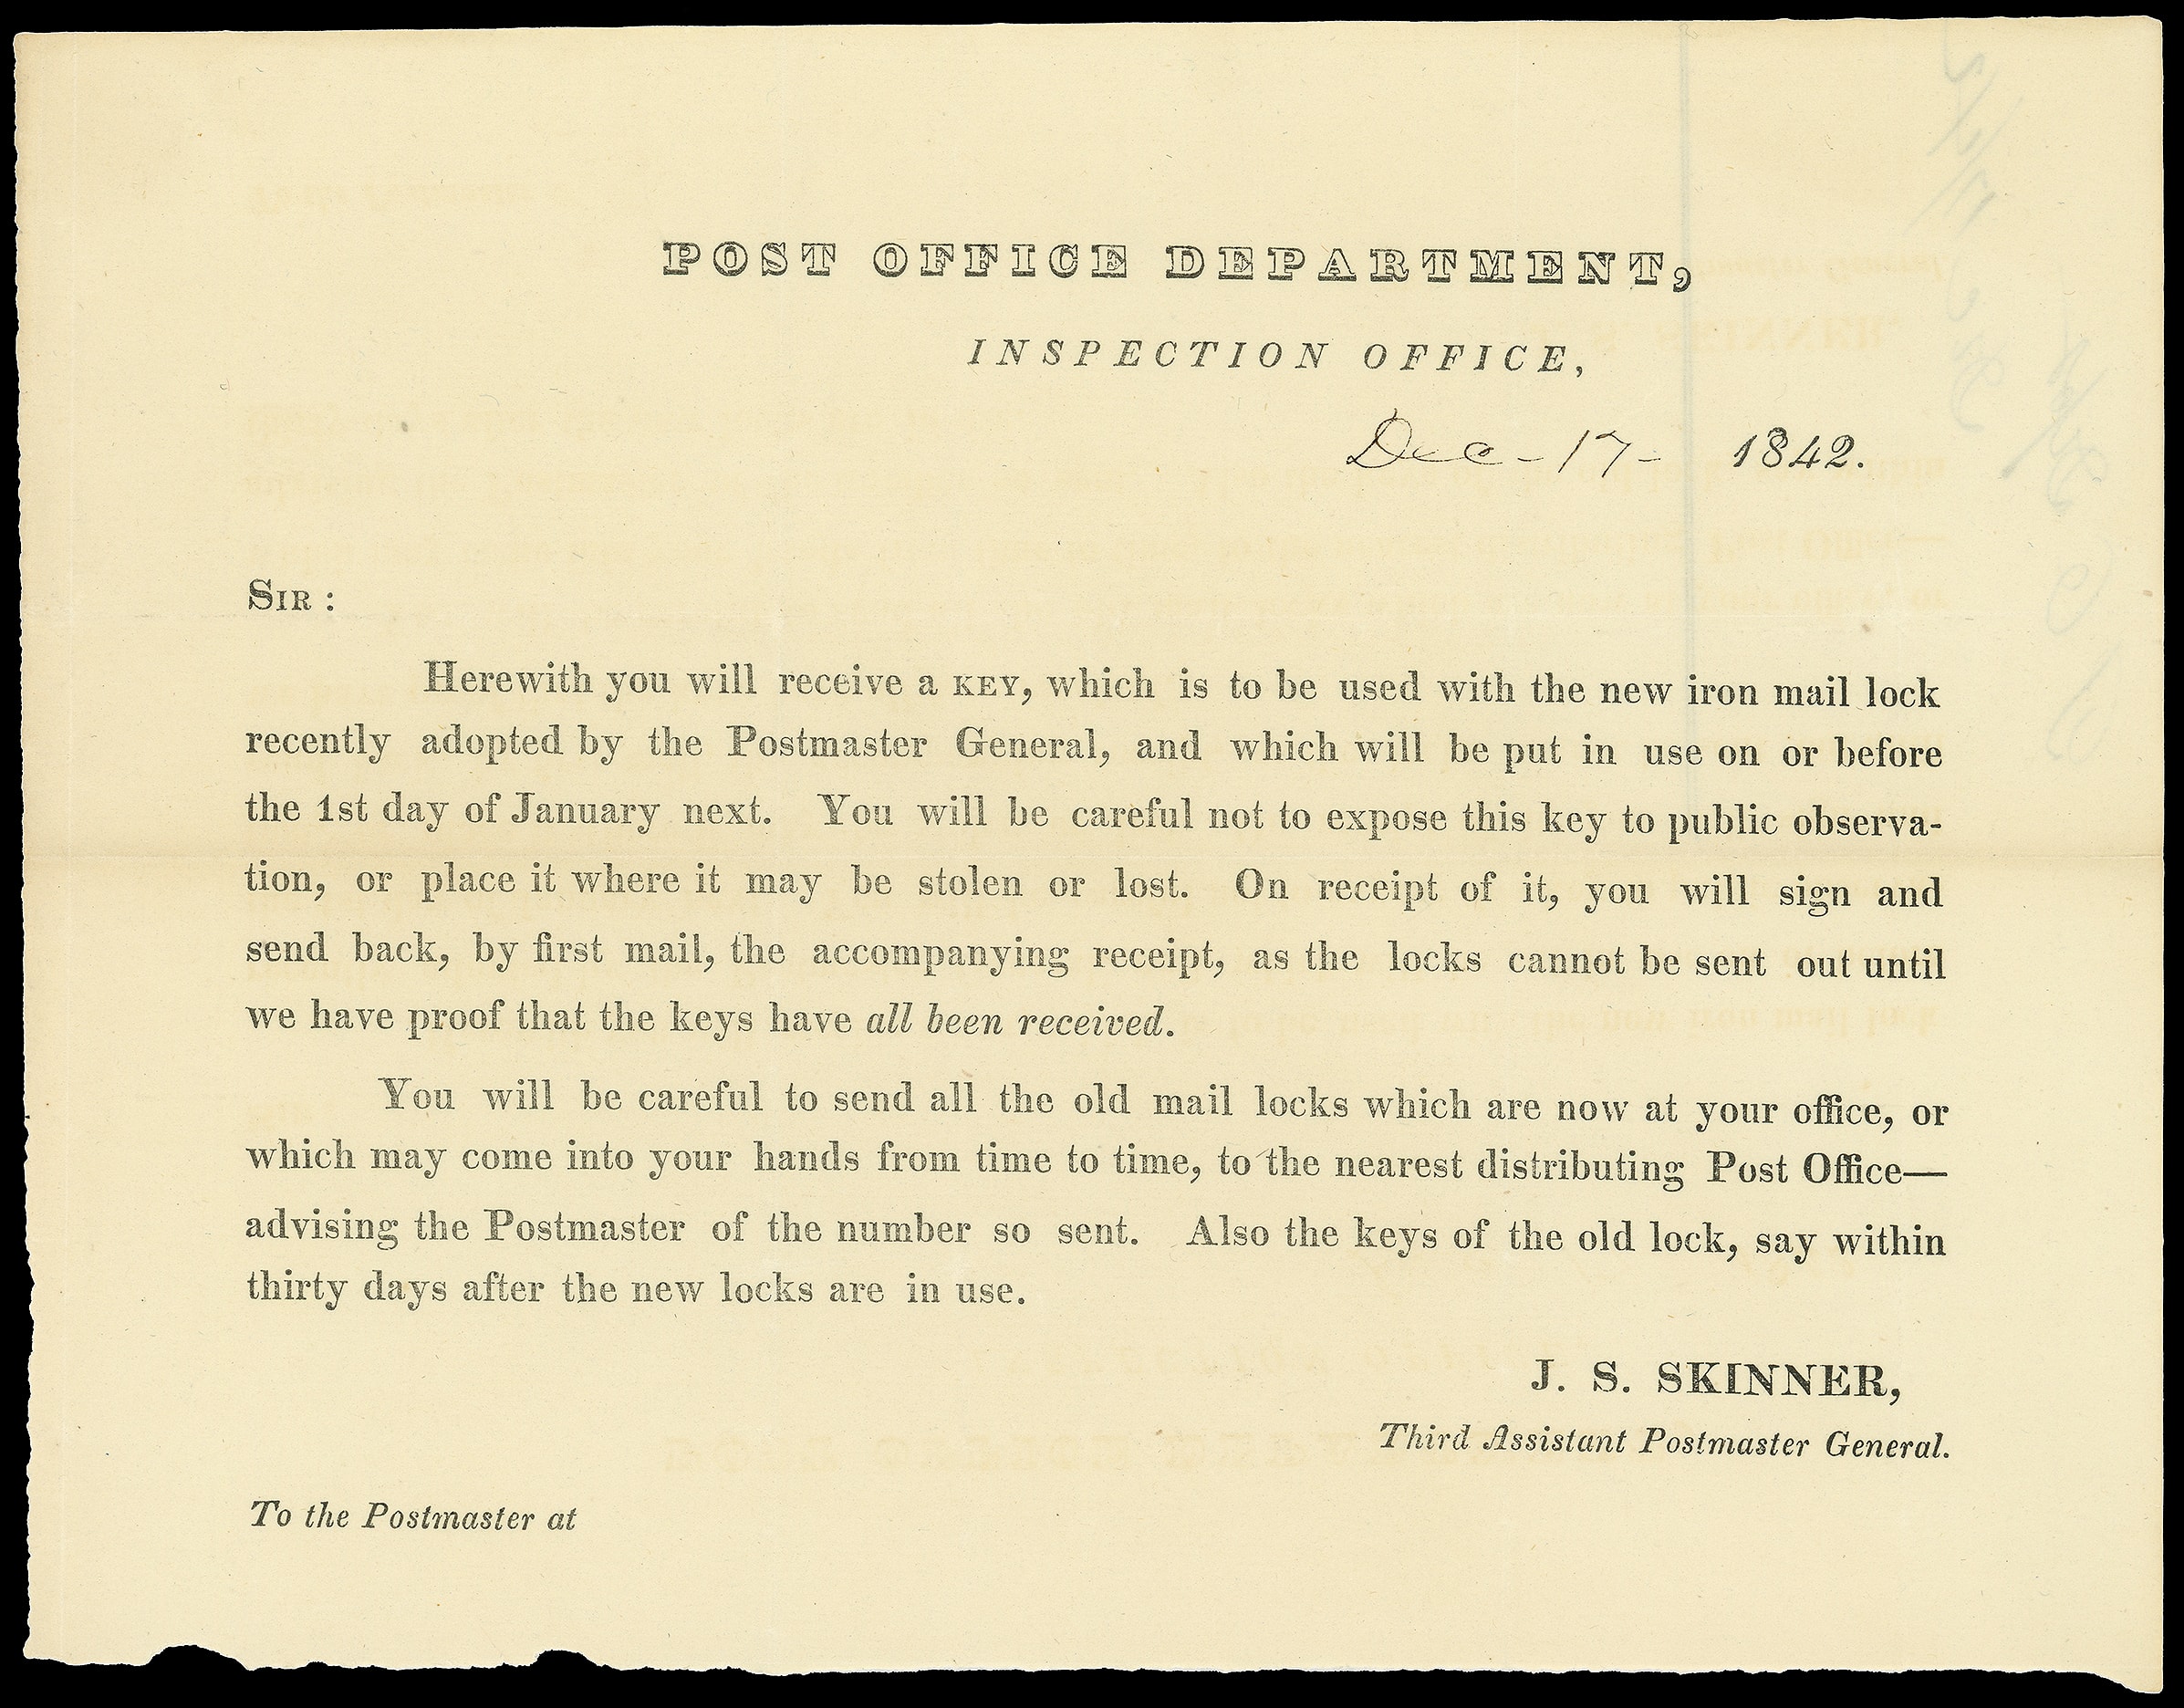 POST OFFICE DEPARTMENT,
INSPECTION OFFICE,
Dec - 17 - 1842.
SIR :
Herewith you will receive a KEY, which is to be used with the new iron mail lock
recently adopted by the Postmaster General, and which will be put in use on or before
the 1st day of January next. You will be careful not to expose this key to public observa-
tion, or place it where it may be stolen or lost. On receipt of it, you will sign and
send back, by first mail, the accompanying receipt, as the locks cannot be sent out until
we have proof that the keys have all been received.
You will be careful to send all the old mail locks which are now at your office, or
which may come into your hands from time to time, to the nearest distributing Post Office—
advising the Postmaster of the number so sent. Also the keys of the old lock, say within
thirty days after the new locks are in use.
J. S. SKINNER,
Third Assistant Postmaster General.
To the Postmaster at